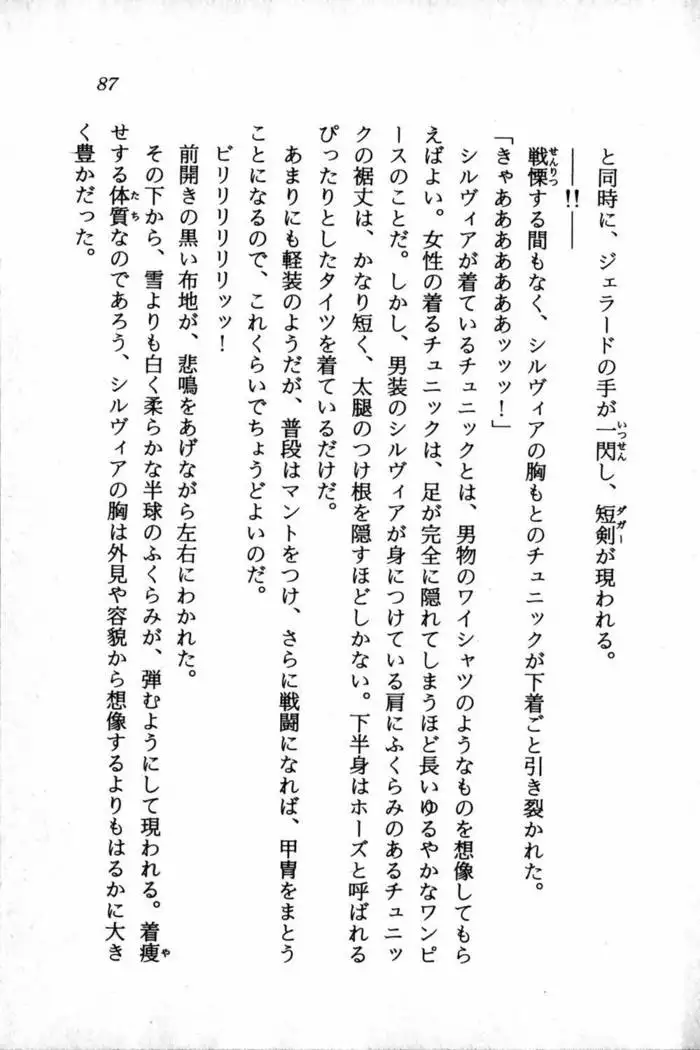 87
と同時に、ジェラードの手が一閃し、短剣が現われる。
いつせん
ダガー
――!!――
戦慄する間もなく、シルヴィアの胸もとのチュニックが下着ごと引き裂かれた。
せんりつ
「きゃああああああッッッ!」
シルヴィアが着ているチュニックとは、男物のワイシャツのようなものを想像してもら
えばよい。女性の着るチュニックは、足が完全に隠れてしまうほど長いゆるやかなワンピ
ースのことだ。しかし、男装のシルヴィアが身につけている肩にふくらみのあるチュニッ
クの裾丈は、かなり短く、太腿のつけ根を隠すほどしかない。下半身はホーズと呼ばれる
ぴったりとしたタイツを着ているだけだ。
あまりにも軽装のようだが、普段はマントをつけ、さらに戦闘になれば、甲冑をまとう
ことになるので、これくらいでちょうどよいのだ。
ビリリリリリリッッ!
前開きの黒い布地が、悲鳴をあげながら左右にわかれた。
その下から、雪よりも白く柔らかな半球のふくらみが、弾むようにして現われる。着痩
や
せする体質なのであろう、シルヴィアの胸は外見や容貌から想像するよりもはるかに大き
たち
く豊かだった。